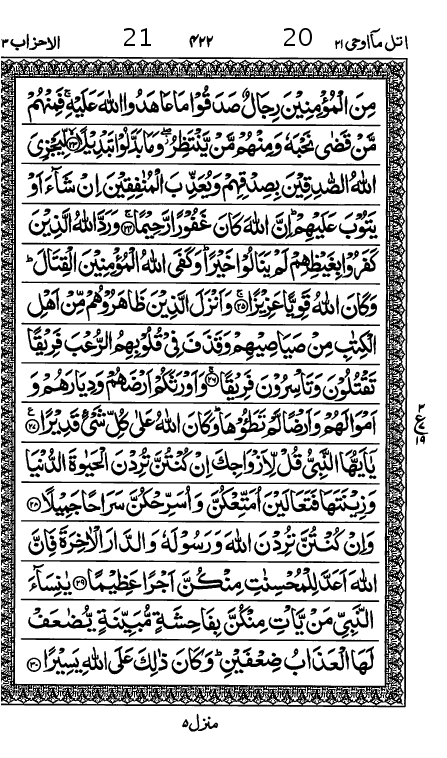 اتل مآ اوحی ۲۱ 20 ۴۲۲ 21 الاحزاب ۳۳
مِنَ الْمُؤْمِنِيْنَ رِجَالٌ صَدَقُوْا مَا عَاهَدُوا اللّٰهَ عَلَيْهِ ۚ فَمِنْهُمْ
مَّنْ قَضٰى نَحْبَهٗ وَمِنْهُمْ مَّنْ يَّنْتَظِرُ ۖ وَمَا بَدَّلُوْا تَبْدِيْلًا ﴿۲۳﴾ لِّيَجْزِىَ
اللّٰهُ الصّٰدِقِيْنَ بِصِدْقِهِمْ وَيُعَذِّبَ الْمُنٰفِقِيْنَ اِنْ شَآءَ اَوْ
يَتُوْبَ عَلَيْهِمْ ؕ اِنَّ اللّٰهَ كَانَ غَفُوْرًا رَّحِيْمًا ﴿۲۴﴾ وَرَدَّ اللّٰهُ الَّذِيْنَ
كَفَرُوْا بِغَيْظِهِمْ لَمْ يَنَالُوْا خَيْرًا ؕ وَكَفَى اللّٰهُ الْمُؤْمِنِيْنَ الْقِتَالَ ؕ
وَكَانَ اللّٰهُ قَوِيًّا عَزِيْزًا ﴿۲۵﴾ وَاَنْزَلَ الَّذِيْنَ ظَاهَرُوْهُمْ مِّنْ اَهْلِ
الْكِتٰبِ مِنْ صَيَاصِيْهِمْ وَقَذَفَ فِىْ قُلُوْبِهِمُ الرُّعْبَ فَرِيْقًا
تَقْتُلُوْنَ وَتَاْسِرُوْنَ فَرِيْقًا ﴿۲۶﴾ وَاَوْرَثَكُمْ اَرْضَهُمْ وَدِيَارَهُمْ وَ
اَمْوَالَهُمْ وَاَرْضًا لَّمْ تَطَـُٔوْهَا ؕ وَكَانَ اللّٰهُ عَلٰى كُلِّ شَىْءٍ قَدِيْرًا ﴿۲۷﴾
يٰۤاَيُّهَا النَّبِىُّ قُلْ لِّاَزْوَاجِكَ اِنْ كُنْتُنَّ تُرِدْنَ الْحَيٰوةَ الدُّنْيَا
وَزِيْنَتَهَا فَتَعَالَيْنَ اُمَتِّعْكُنَّ وَاُسَرِّحْكُنَّ سَرَاحًا جَمِيْلًا ﴿۲۸﴾
وَاِنْ كُنْتُنَّ تُرِدْنَ اللّٰهَ وَرَسُوْلَهٗ وَالدَّارَ الْاٰخِرَةَ فَاِنَّ
اللّٰهَ اَعَدَّ لِلْمُحْسِنٰتِ مِنْكُنَّ اَجْرًا عَظِيْمًا ﴿۲۹﴾ يٰنِسَآءَ
النَّبِىِّ مَنْ يَّاْتِ مِنْكُنَّ بِفَاحِشَةٍ مُّبَيِّنَةٍ يُّضٰعَفْ
لَهَا الْعَذَابُ ضِعْفَيْنِ ؕ وَكَانَ ذٰلِكَ عَلَى اللّٰهِ يَسِيْرًا ﴿۳۰﴾
ع
۱۹
منزل ۵